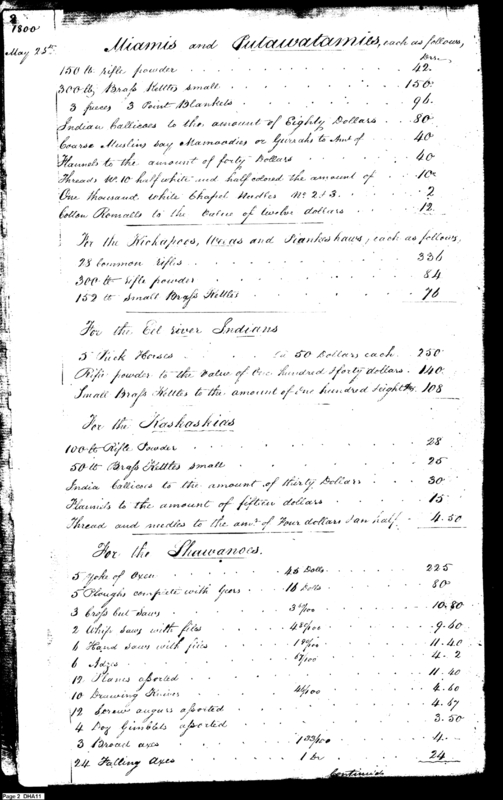 2
1800
May 25th
Miamis and Putawatamies, each as follows,
150 lb rifle powder 42.
300 lb, Brass Kettles small 150
3 pieces 3 Point Blankets 96.
Indian Callicoes to the amount of Eighty Dollars 80
Coarse Muslins say Mamoodies or Gurrahs to Amt of 40
Flannels to the amount of forty Dollars 40
Threads No. 10 half white and half colored the amount of 10
One thousand white Chapel Needles No. 2 & 3. 2
Cotton Romalls to the value of twelve dollars 12
For the Kickapoos, Weas and Piankeshaws, each as follows,
28 common rifles 336
300 lb rifle powder 84
152 lb small Brass Kettles 76
For the Eel river Indians
5 Pack Horses 50 Dollars each 250
Rifle powder to the value of One hundred & forty dollars 140
Small Brass Kettles to the amount of One hundred & eight 108
For the Kaskaskias
100 lb Rifle Powder 28
50 lb Brass Kettles small 25
India Callicoes to the amount of thirty Dollars 30
Flannels to the amount of fifteen dollars 15
Thread and needles to the amt. of Four dollars & an half 4.50
For the Shawanoes.
5 yoke of Oxen 45 Dolls 225
5 Ploughs complete with Gears 16 Dolls 80
3 Cross Cut saws 3 60/100 10.80
2 Whip saws with files 9.60
6 Hand saws with files 1 90/100 11.40
6 Adzes 4.2
12 Planes assorted 11.40
10 Drawing Knives 46/100 4.60
12 Screw augurs assorted 4.57
4 Doz Gimblets assorted 3.50
3 Broad axes 1 33/100 4.
24 Falling Axes 24
Continued
Page 2 DHA11